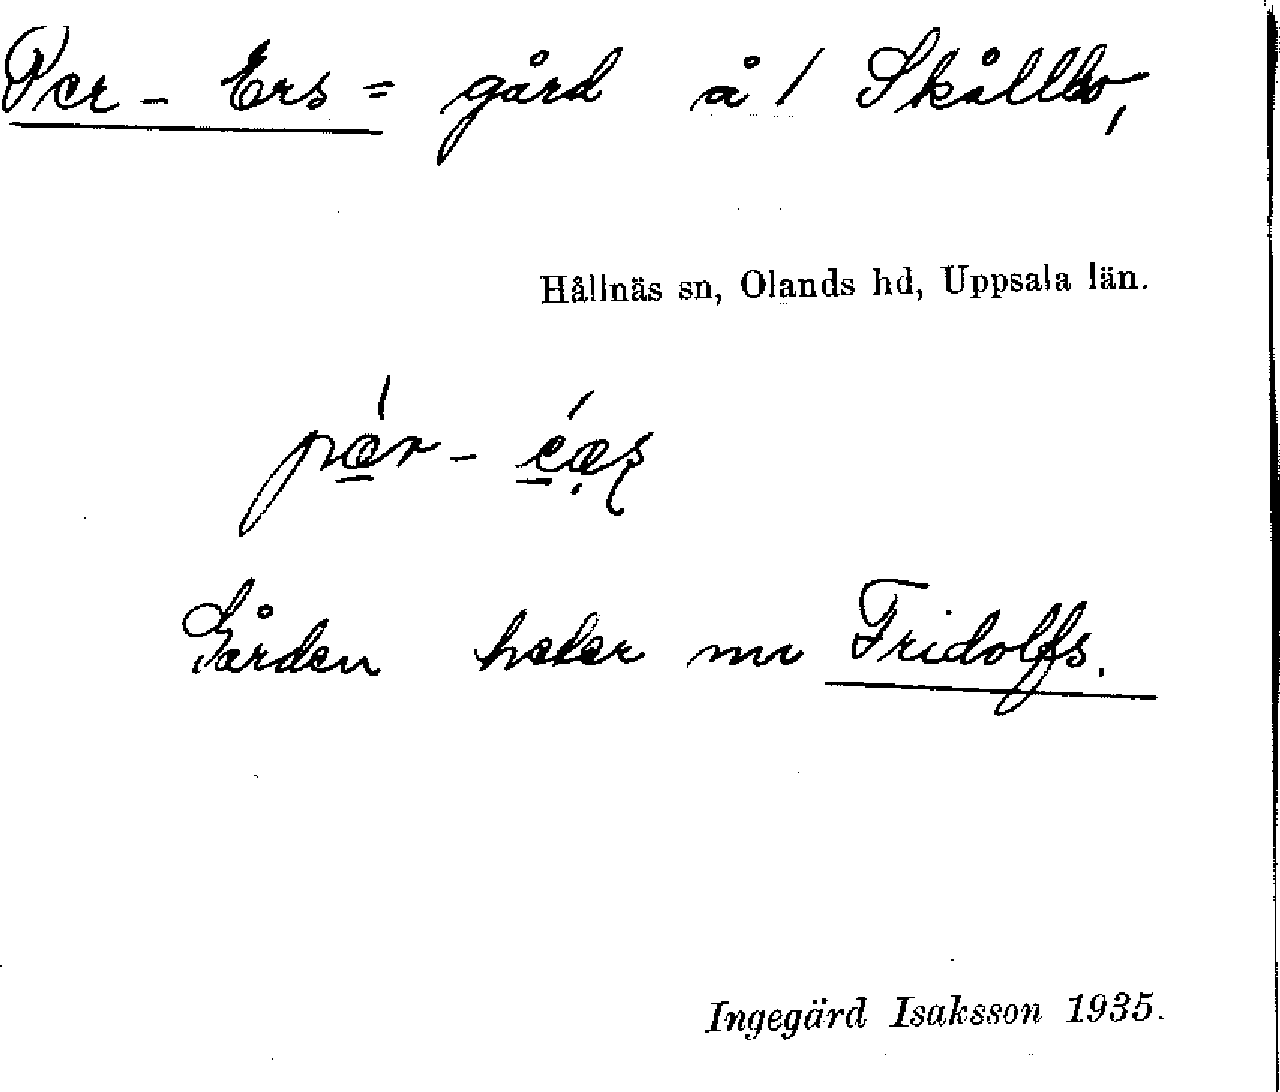 Per - Ers = gård å / Skållbo,
Hållnäs sn, Olands hd, Uppsala län.
pær - eəș
Gården heter nu Fridolfs.
Ingegärd Isaksson 1935.